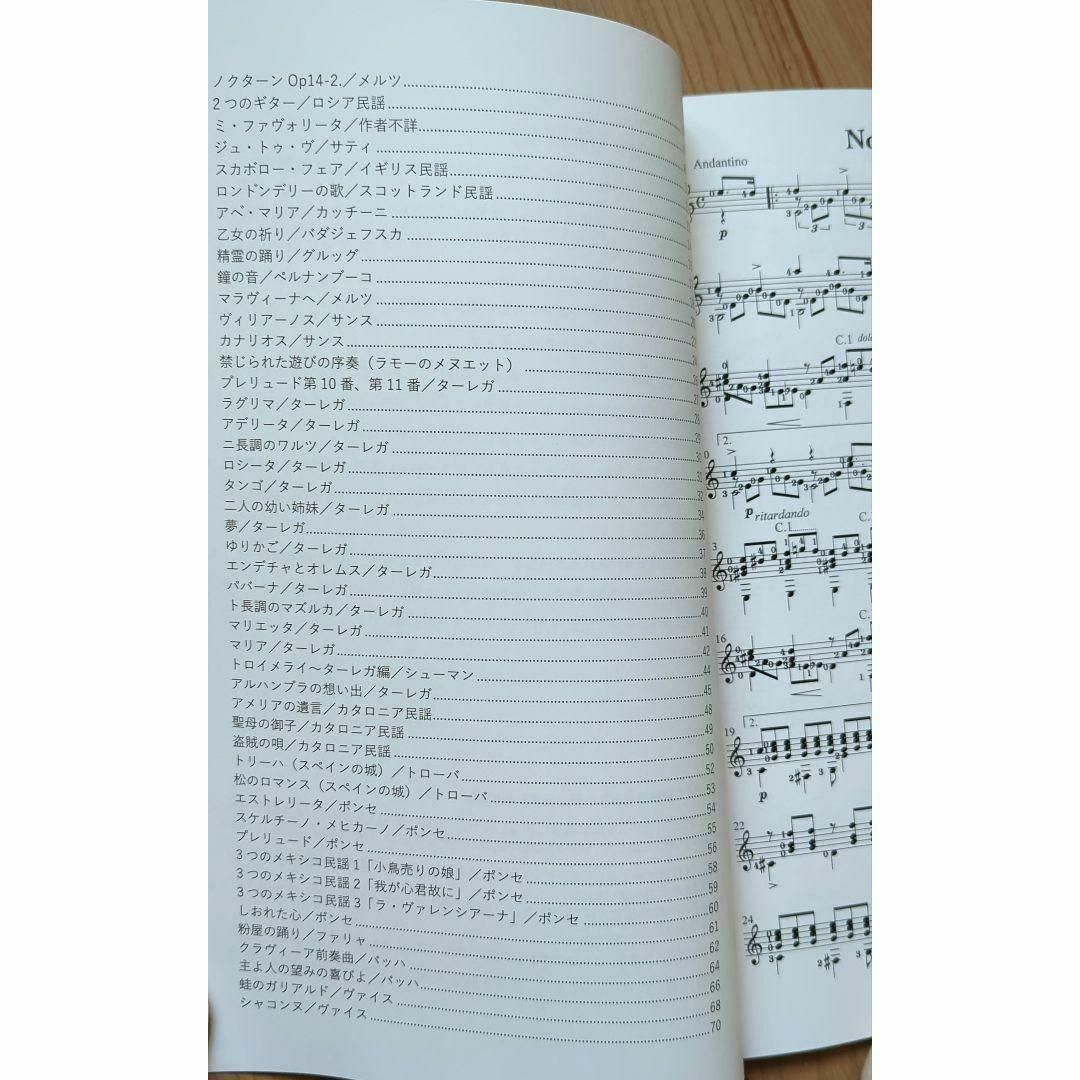 ノクターン Op14-2.／メルツ
2つのギター／ロシア民謡
ミ・ファヴォリータ／作者不詳
ジュ・トゥ・ヴ／サティ
スカボロー・フェア／イギリス民謡
ロンドンデリーの歌／スコットランド民謡
アベ・マリア／カッチーニ
乙女の祈り／バダジェフスカ
精霊の踊り／グルッグ
鐘の音／ペルナンブーコ
マラヴィーナへ／メルツ
ヴィリアーノス／サンス
カナリオス／サンス
禁じられた遊びの序奏（ラモーのメヌエット） 26
プレリュード第10番、第11番／ターレガ 27
ラグリマ／ターレガ 28
アデリータ／ターレガ 29
ニ長調のワルツ／ターレガ 30
ロシータ／ターレガ 31
タンゴ／ターレガ 32
二人の幼い姉妹／ターレガ 34
夢／ターレガ 36
ゆりかご／ターレガ 37
エンデチャとオレムス／ターレガ 38
パバーナ／ターレガ 39
ト長調のマズルカ／ターレガ 40
マリエッタ／ターレガ 41
マリア／ターレガ 42
トロイメライ〜ターレガ編／シューマン 44
アルハンブラの想い出／ターレガ 45
アメリアの遺言／カタロニア民謡 48
聖母の御子／カタロニア民謡 49
盗賊の唄／カタロニア民謡 50
トリーハ（スペインの城）／トローバ 52
松のロマンス（スペインの城）／トローバ 53
エストレリータ／ポンセ 54
スケルチーノ・メヒカーノ／ポンセ 55
プレリュード／ポンセ 56
3つのメキシコ民謡1「小鳥売りの娘」／ポンセ 58
3つのメキシコ民謡2「我が心君故に」／ポンセ 59
3つのメキシコ民謡3「ラ・ヴァレンシアーナ」／ポンセ 60
しおれた心／ポンセ 61
粉屋の踊り／ファリャ 62
クラヴィーア前奏曲／バッハ 64
主よ人の望みの喜びよ／バッハ 66
蛙のガリアルド／ヴァイス 68
シャコンヌ／ヴァイス 70
No
Andantino
p
C.1 dol
2.
p ritardando
C.1
C.
3
16
C.
19
2.
p
22
24